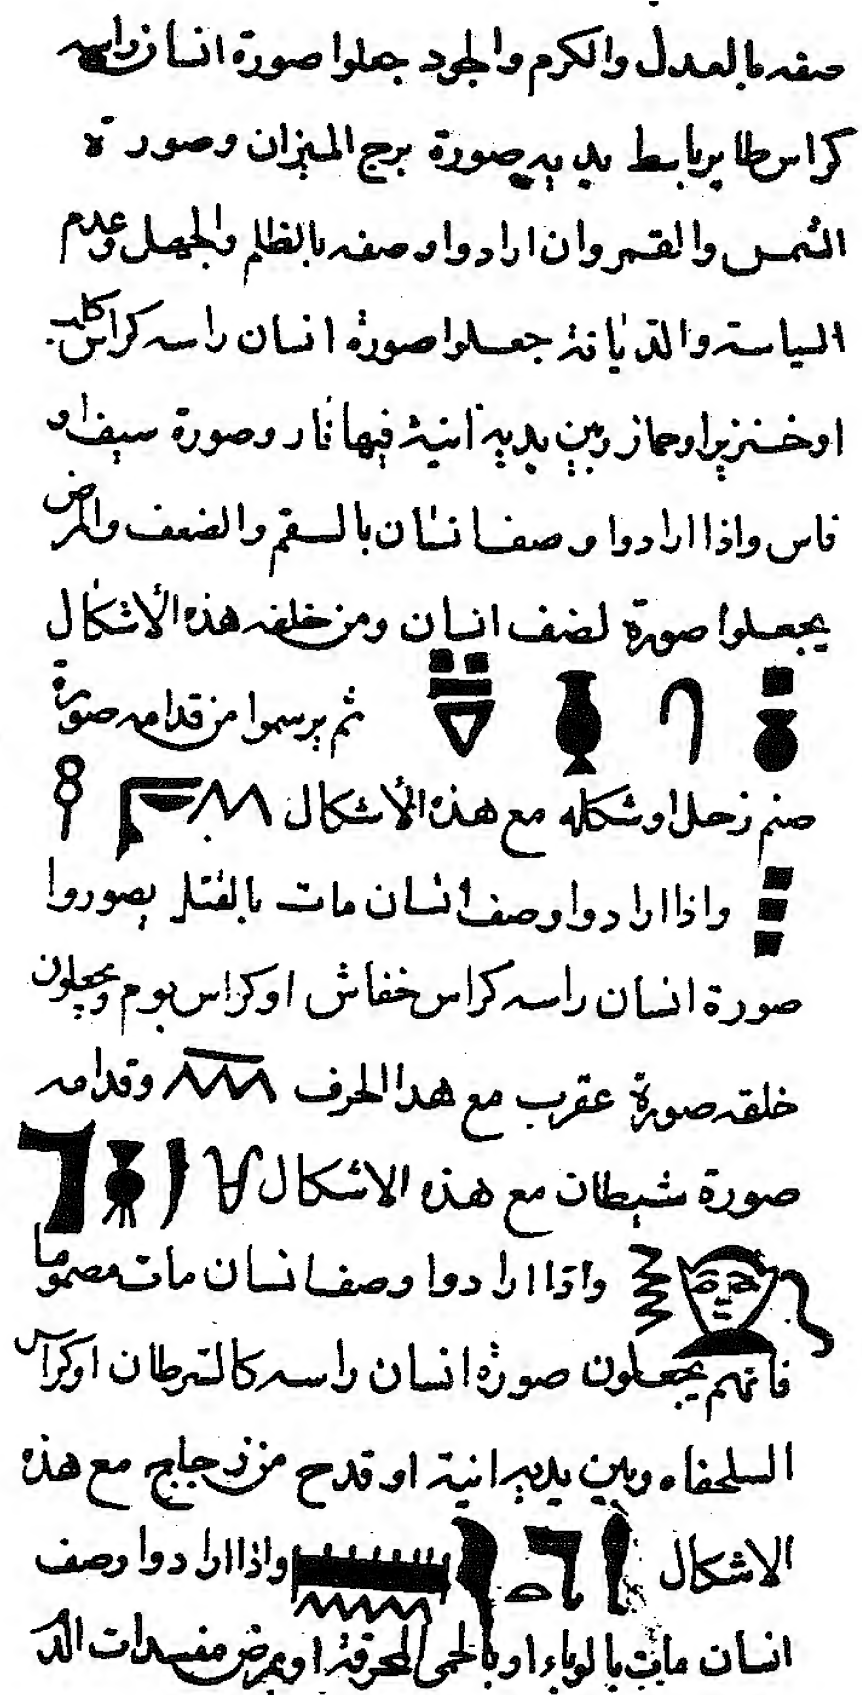 صفه بالعدل والكرم والجود جعلوا صورة انسان راسه
كراس طاير باسط يديه صورة برج الميزان وصورة
الشمس والقمر وان ارادوا وصفه بالظلم والجهل وعدم
السياسة والديانة جعلوا صورة انسان راسه كراس كلب
او خنزيرا وحماز وبين يديه انية فيها نار وصورة سيف او
فاس واذا ارادوا وصف انسان بالسقم والضعف والمرض
يجعلوا صورة لضف انسان ومن خلفه هذه الأشكال
ثم يرسموا من قدامه صورة
صنم زحل او شكله مع هذه الأشكال
واذا ارادوا وصف انسان مات بالقتل يصوروا
صورة انسان راسه كراس خفاش او كراس بوم ويجعلون
خلفه صورة عقرب مع هدا الحرف وقدامه
صورة شيطان مع هذه الاشكال
واذا ارادوا وصف انسان مات مصموما
فانهم يجعلون صورة انسان راسه كالسرطان او كراس
السلحفاه وبين يديه انية او قدح من زجاج مع هذه
الاشكال واذا ارادوا وصف
انسان مات بالوباء او بالحمى المحرقة او بمرض مفسدات الد